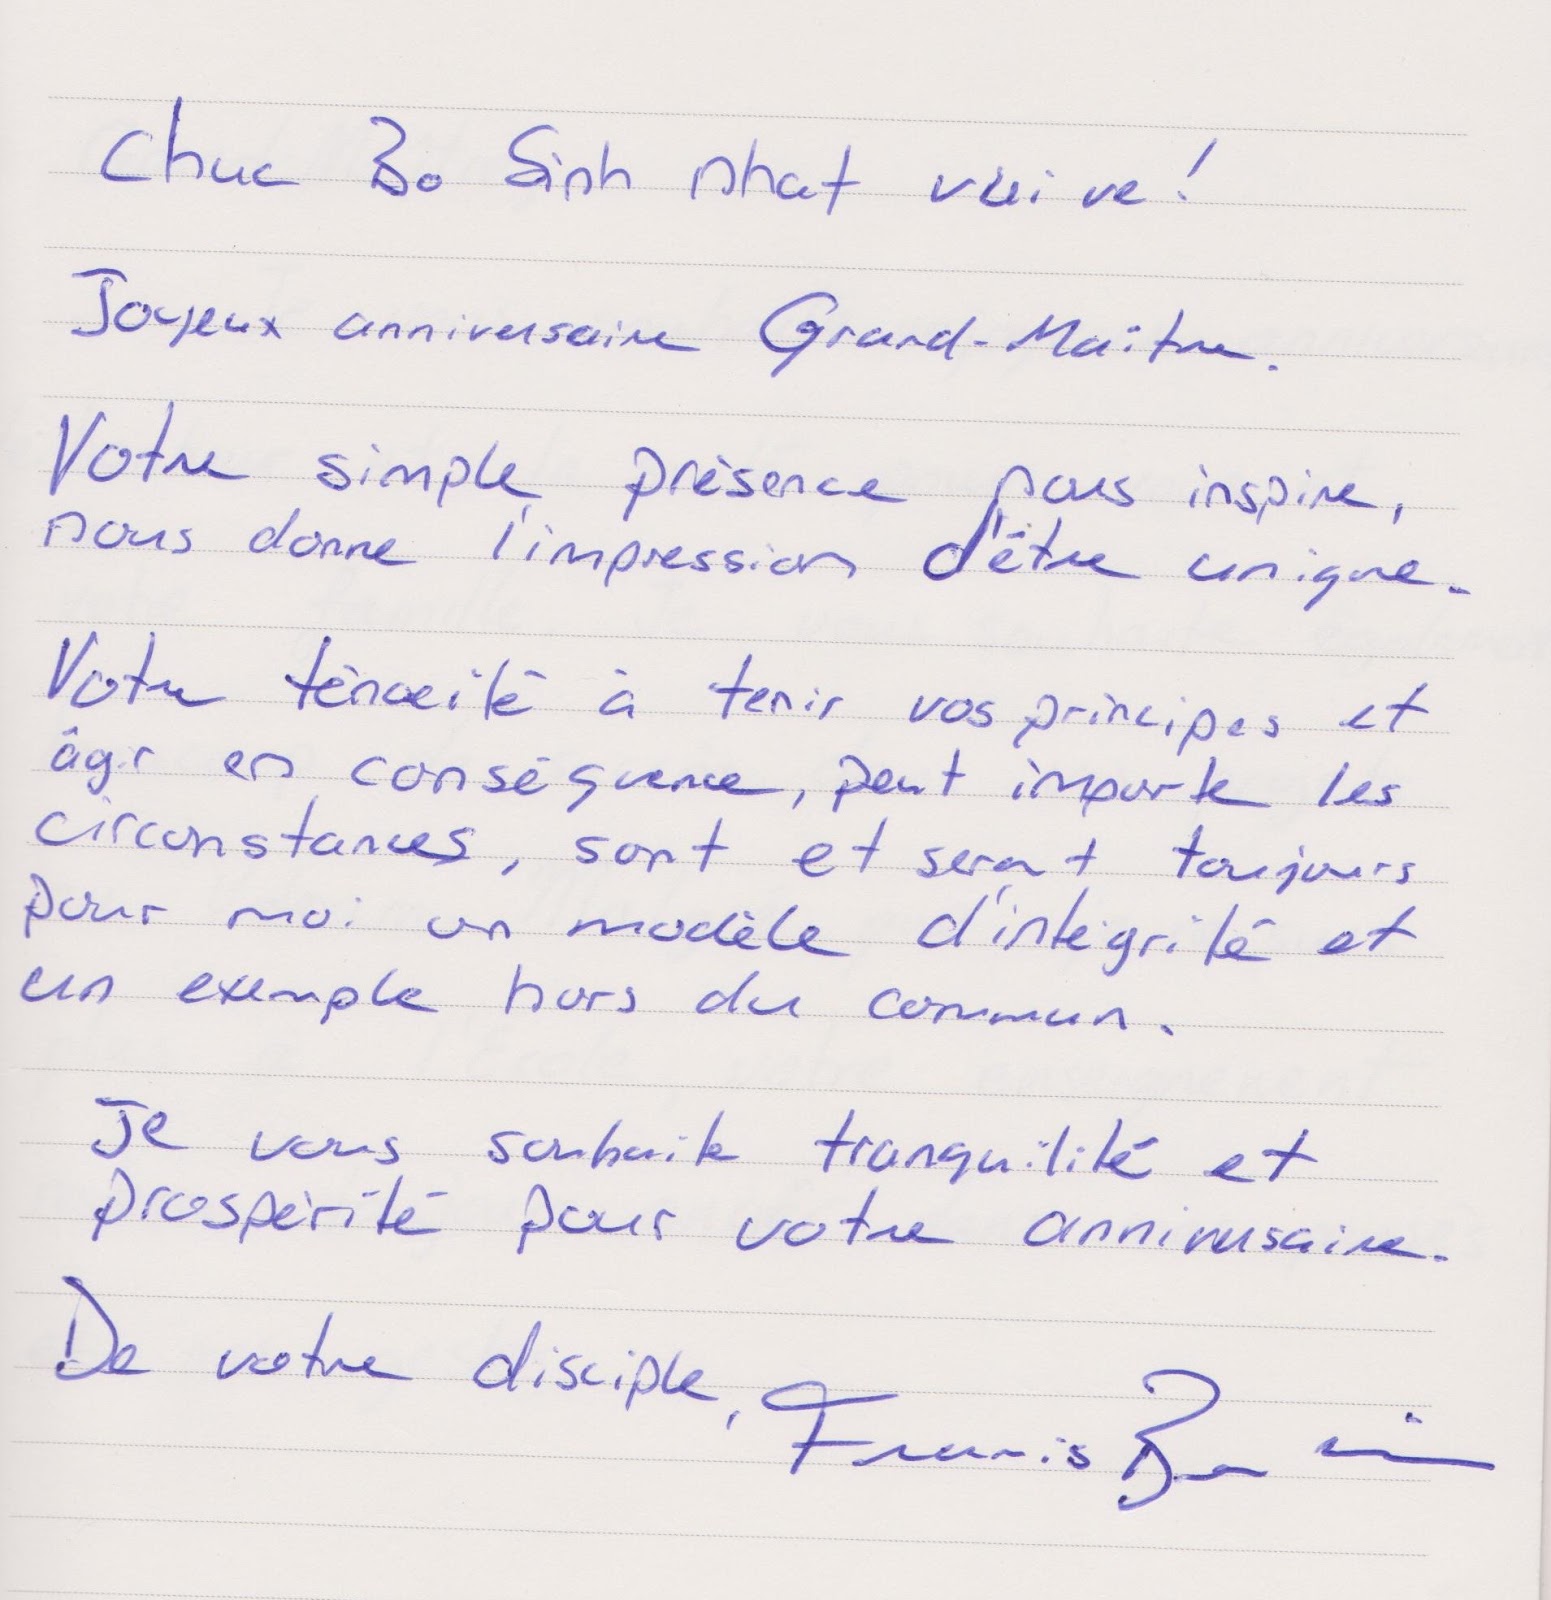 Chuc Bo Sinh nhat vui ve!
Joyeux anniversaire Grand-Maître.
Votre simple présence nous inspire,
nous donne l'impression d'être unique.
Votre ténacité à tenir vos principes et
âgir en conséquence, peut importe les
circonstances, sont et seront toujours
pour moi un modèle d'intégrité et
un exemple hors du commun.
Je vous souhaite tranquilité et
prospérité pour votre anniversaire.
De votre disciple,
Francis